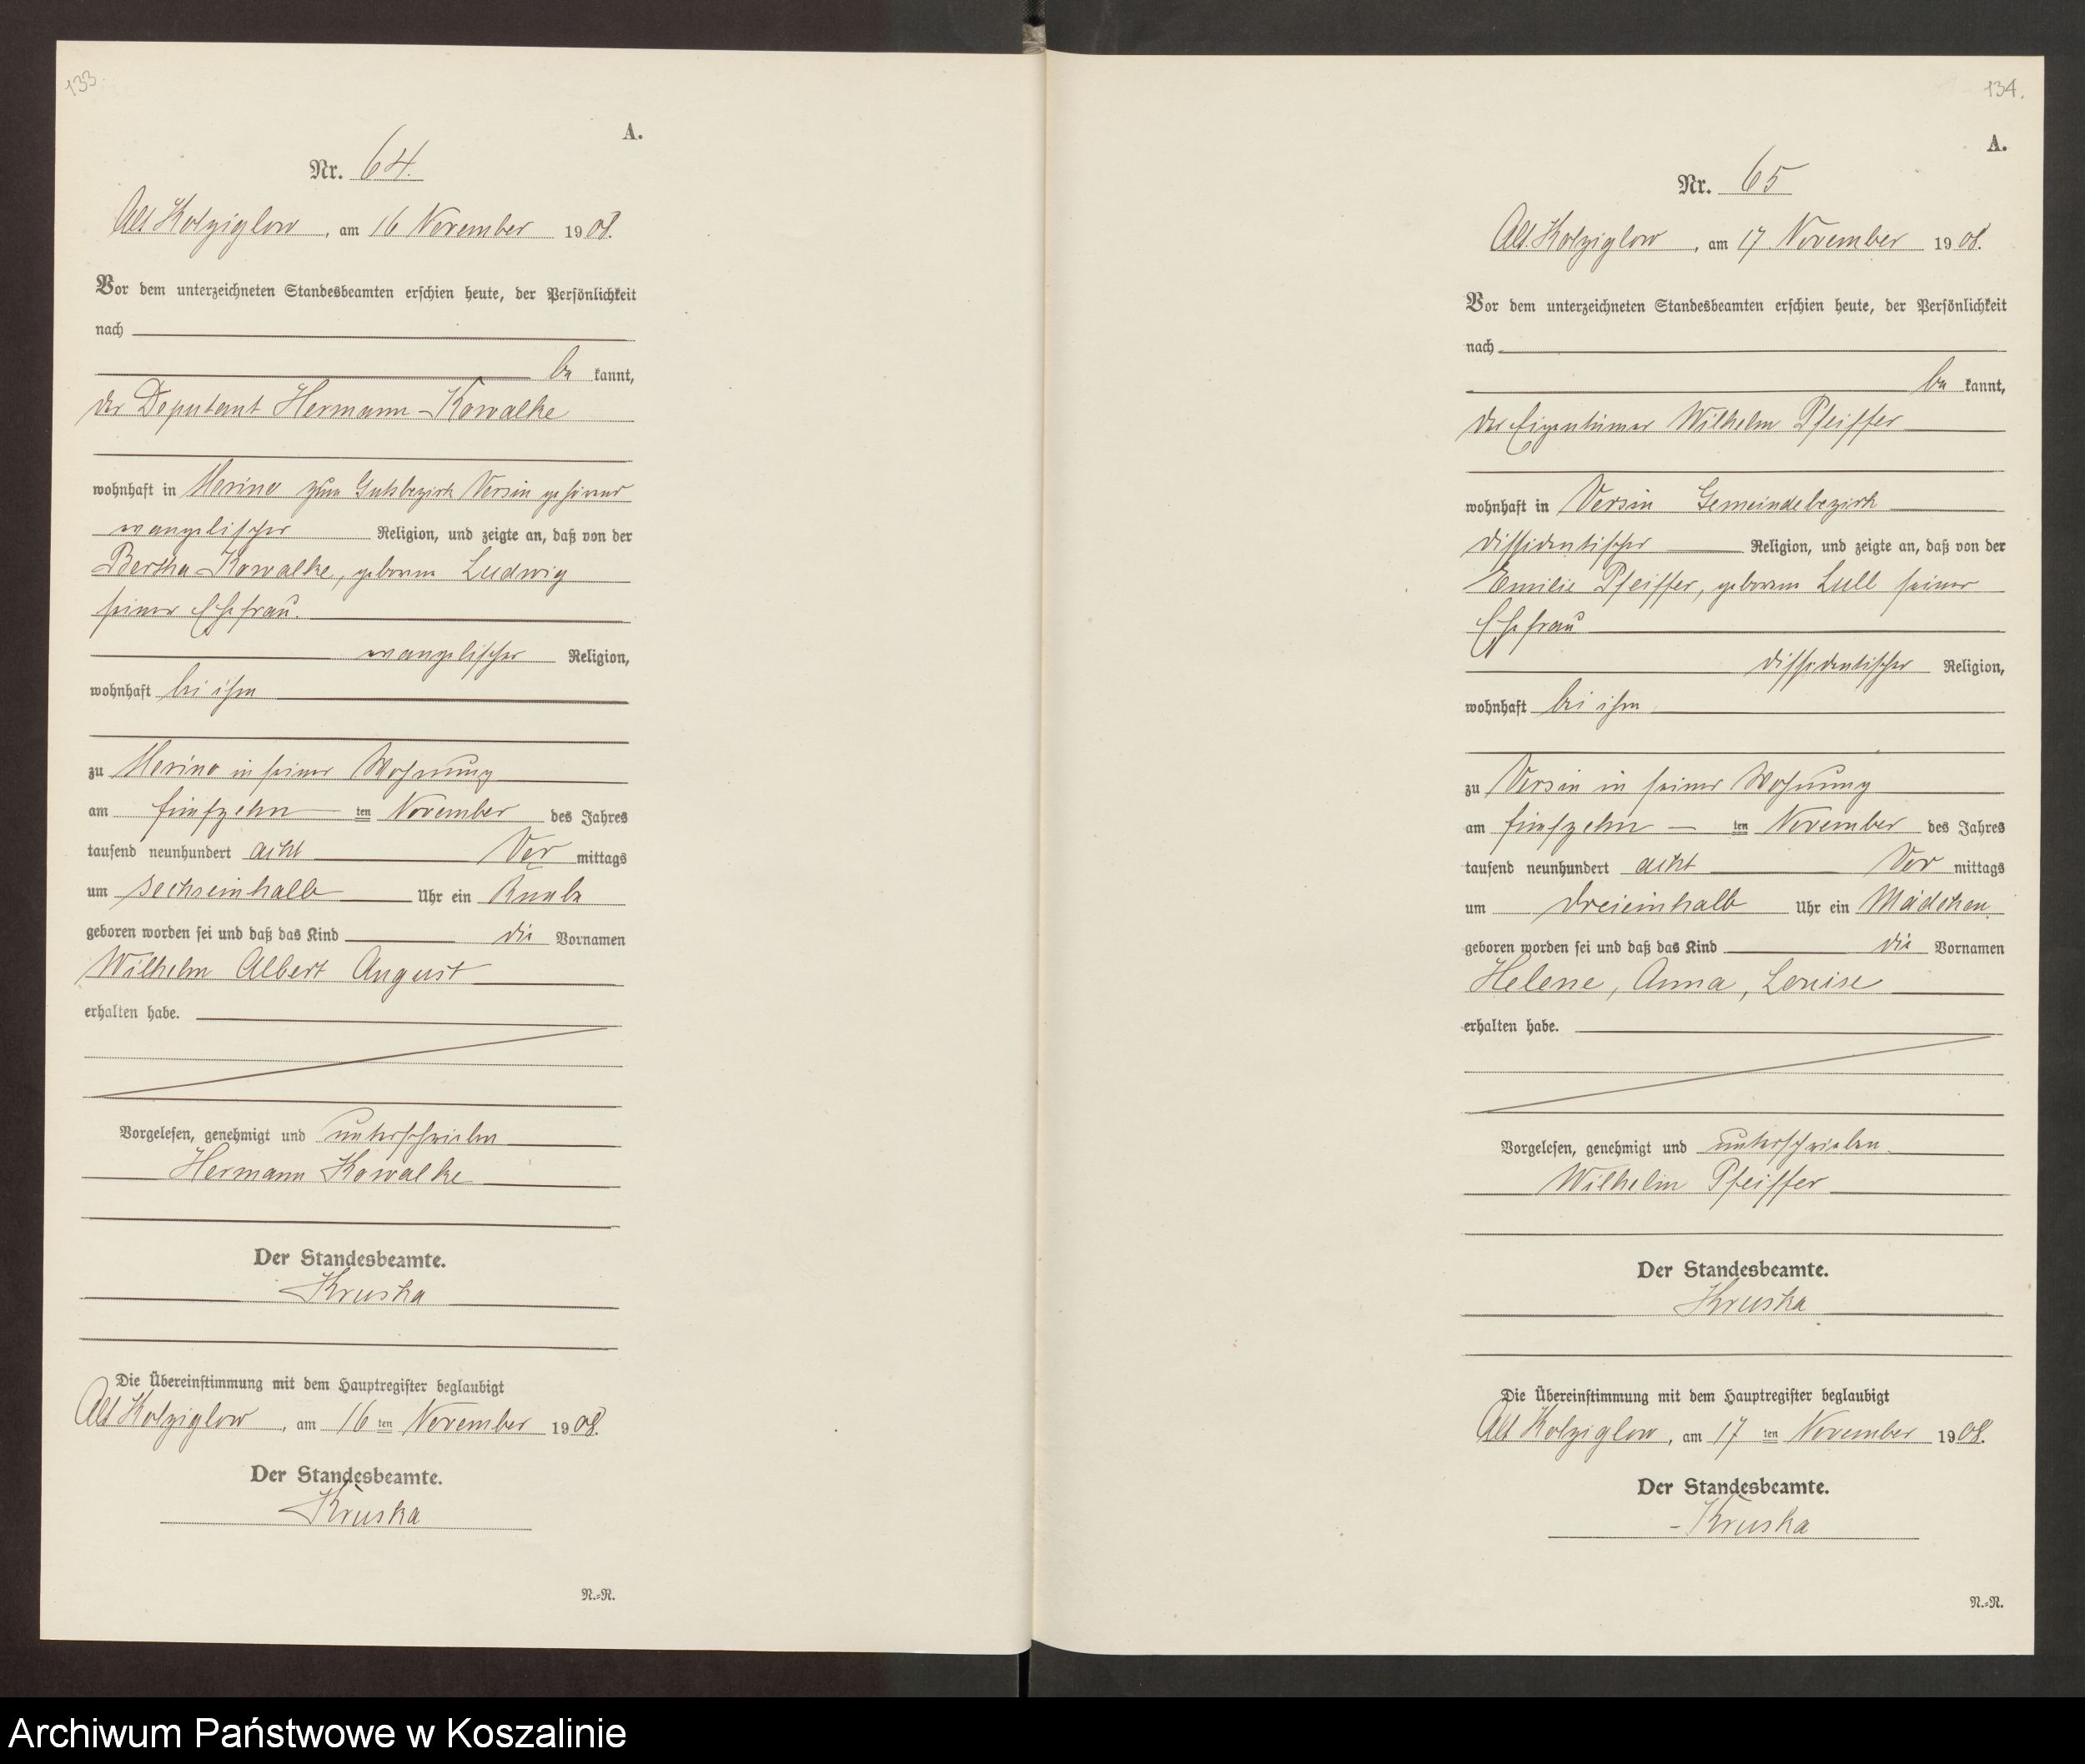 133
A.
Nr. 64.
Alt Kolziglow, am 16 November 1908.
Vor dem unterzeichneten Standesbeamten erschien heute, der Persönlichkeit
nach
be kannt,
der Deputant Hermann Kowalke
wohnhaft in Merino zum Gutsbezirk Versin gehörend
evangelischer Religion, und zeigte an, daß von der
Bertha Kowalke, geborene Ludwig
seiner Ehefrau.
evangelischer Religion,
wohnhaft bei ihm
zu Merino in seiner Wohnung
am fünfzehn ten November des Jahres
tausend neunhundert acht Vor mittags
um sechseinhalb Uhr ein Knabe
geboren worden sei und daß das Kind die Vornamen
Wilhelm Albert August
erhalten habe.
Vorgelesen, genehmigt und unterschrieben
Hermann Kowalke
Der Standesbeamte.
Kruska
Die Übereinstimmung mit dem Hauptregister beglaubigt
Alt Kolziglow, am 16 ten November 1908.
Der Standesbeamte.
Kruska
N.=N.
134.
A.
Nr. 65
Alt. Kolziglow, am 17 November 1908.
Vor dem unterzeichneten Standesbeamten erschien heute, der Persönlichkeit
nach
be kannt,
der Eigentümer Wilhelm Pfeiffer
wohnhaft in Versin Gemeindebezirk
dissidentischer Religion, und zeigte an, daß von der
Emilie Pfeiffer, geborene Lüll seiner
Ehefrau
dissidentischer Religion,
wohnhaft bei ihm
zu Versin in seiner Wohnung
am fünfzehn ten November des Jahres
tausend neunhundert acht Vor mittags
um dreieinhalb Uhr ein Mädchen
geboren worden sei und daß das Kind die Vornamen
Helene, Anna, Louise
erhalten habe.
Vorgelesen, genehmigt und unterschrieben.
Wilhelm Pfeiffer
Der Standesbeamte.
Kruska
Die Übereinstimmung mit dem Hauptregister beglaubigt
Alt Kolziglow, am 17 ten November 1908.
Der Standesbeamte.
Kruska
N.=N.
Archiwum Państwowe w Koszalinie